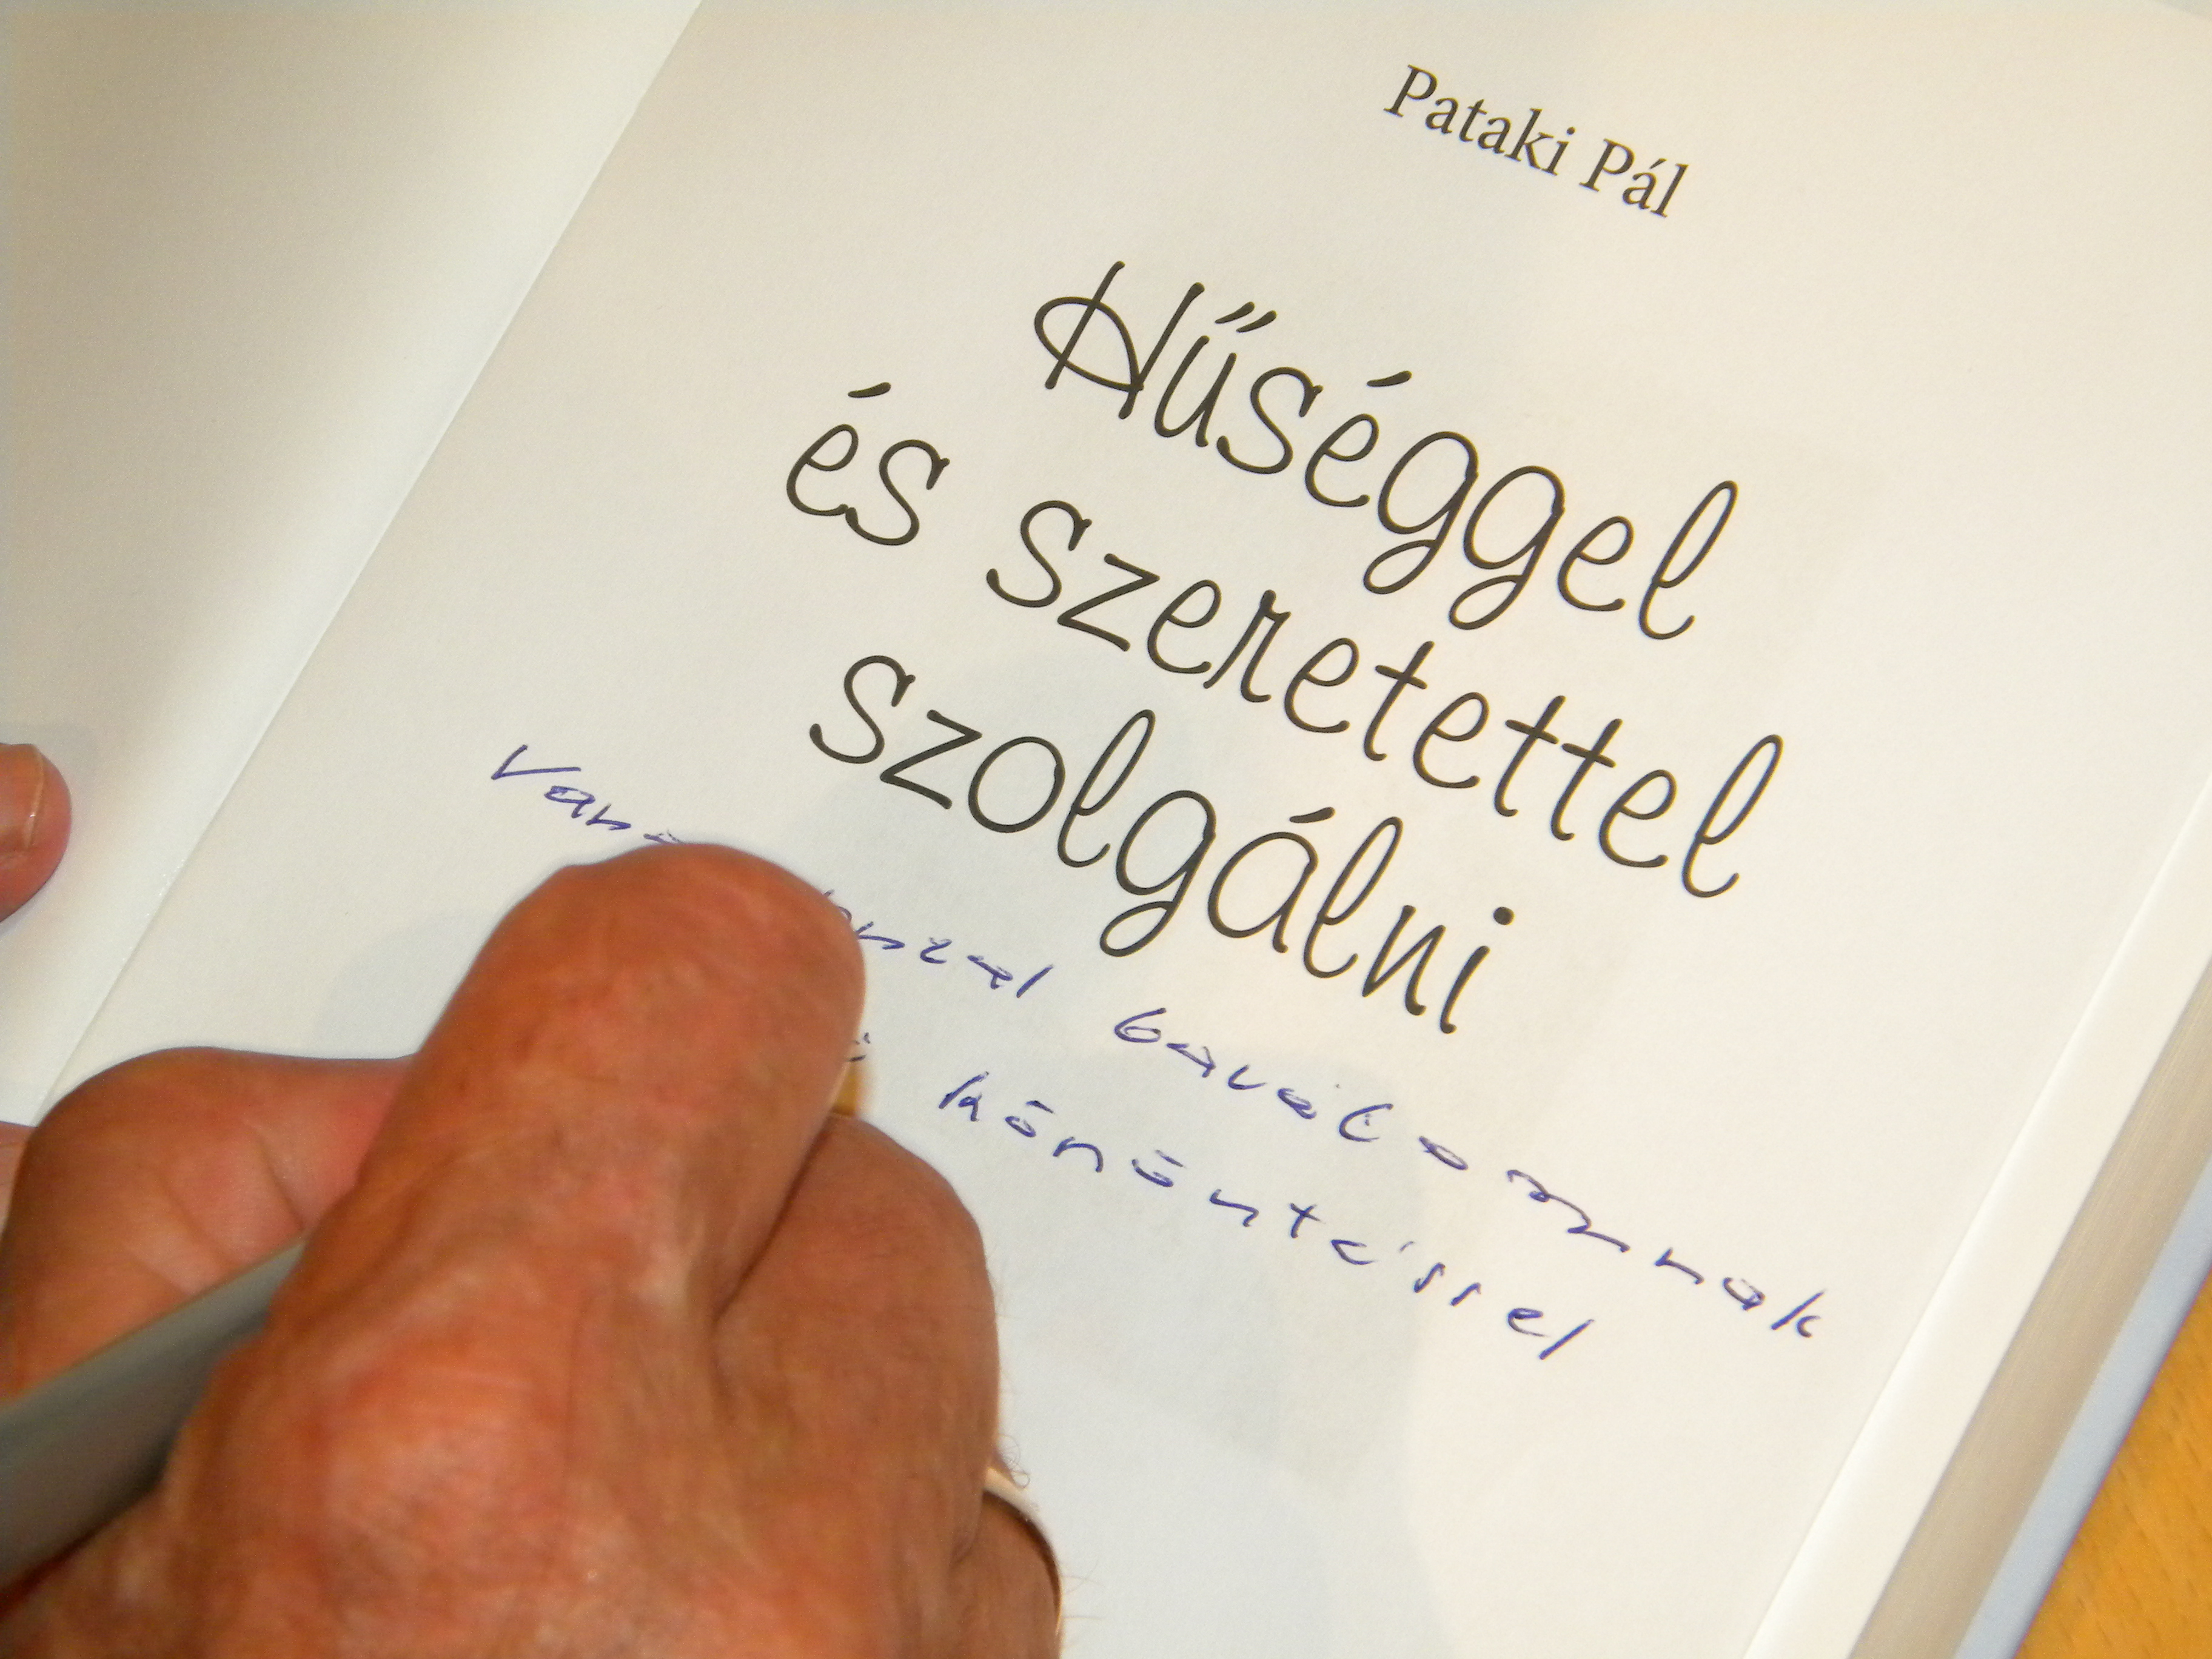 Pataki Pál
Hűséggel
és szeretettel
szolgálni
barátomnak
köröntéssel